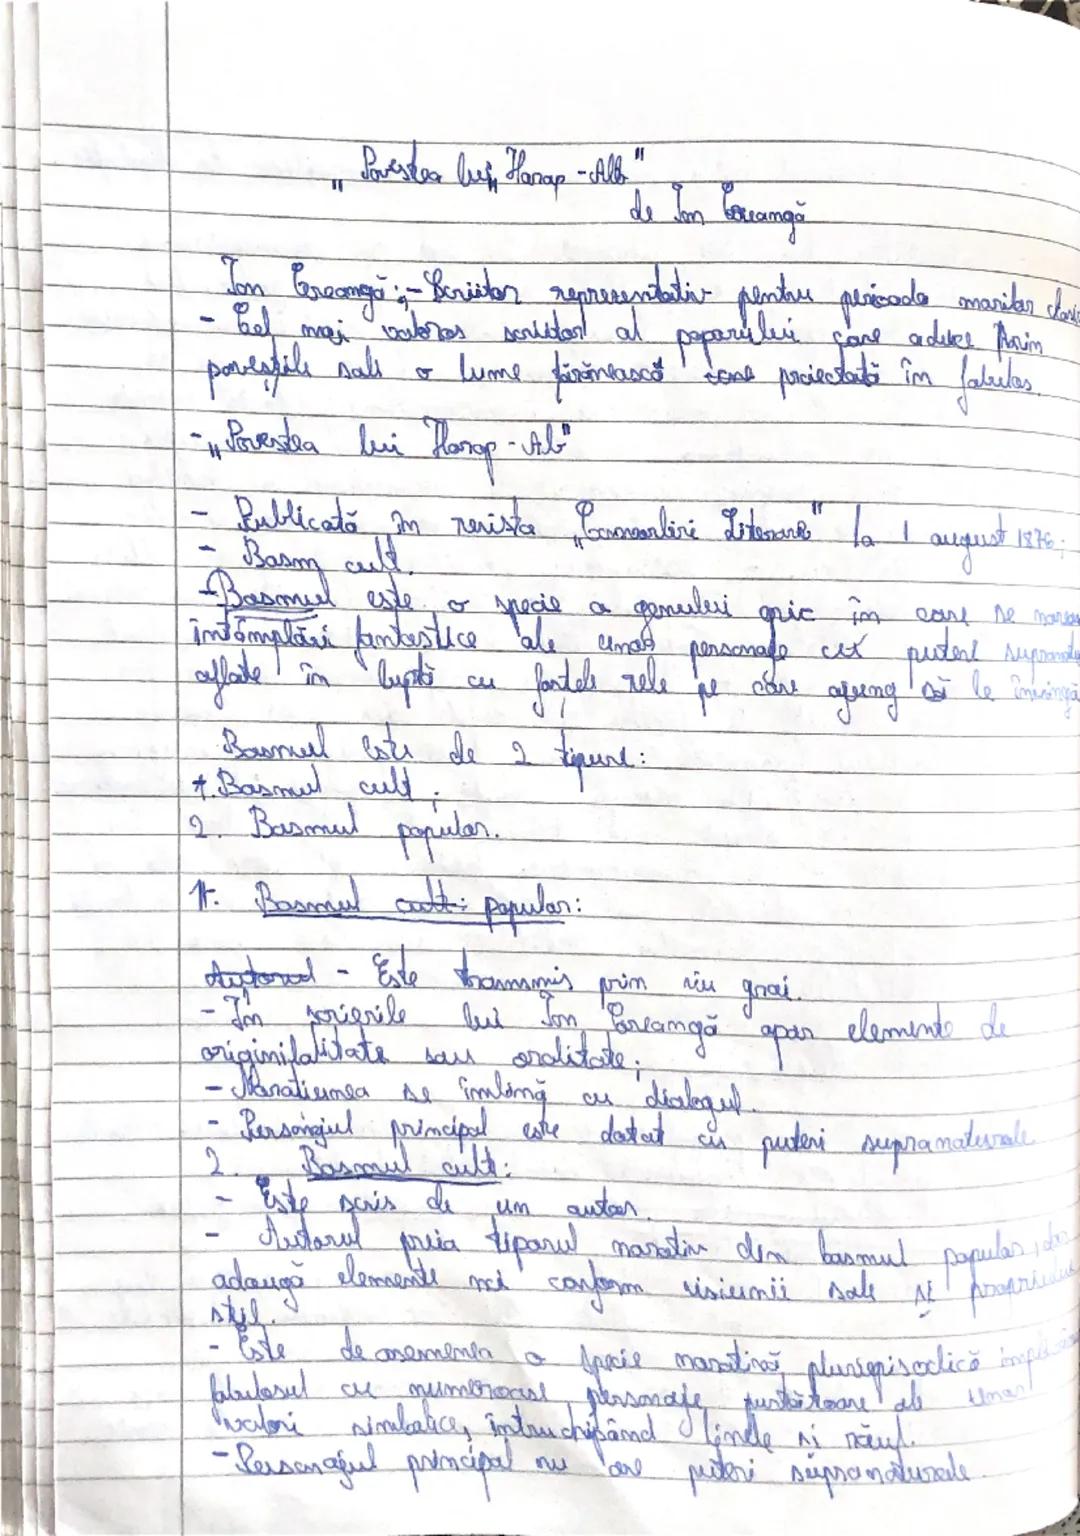 „Povestea lui Harap-Alb"
de Ion Creangă
Ion Creangă: - Scriitor reprezentativ pentru perioada marilor clasici
- Cel mai valoros scriitor al poporului care aduce prin
poveștile sale o lume țărănească proiectată în fabulos.
- „Povestea lui Harap-Alb"
- Publicată în revista „Convorbiri Literare" la 1 august 1876;
- Basm cult.
- Basmul este o specie a genului epic în care se
întâmplări fantastice ale unor personaje cu puteri
aflate în luptă cu forțele rele pe care ajung să le învingă
Basmul este de 2 tipuri:
1. Basmul cult;
2. Basmul popular.
1. Basmul cult: popular:
Autorul - Este transmis prin viu grai.
- În scrierile lui Ion Creangă apar elemente de
sau oralitate;
- Narațiunea se îmbină cu dialogul.
- Personajul principal este dotat cu puteri supranaturale
2. Basmul cult:
- Este scris de un autor.
- Autorul preia tiparul narativ din basmul popular, dar
adaugă elemente noi conform viziunii sale și propriului
stil.
- Este de asemenea o specie narativă pluriepisodică
fabulosul cu numeroase personaje purtătoare ale unor
valori simbolice, întruchipând binele și răul.
- Personajul principal nu are puteri supranaturale.